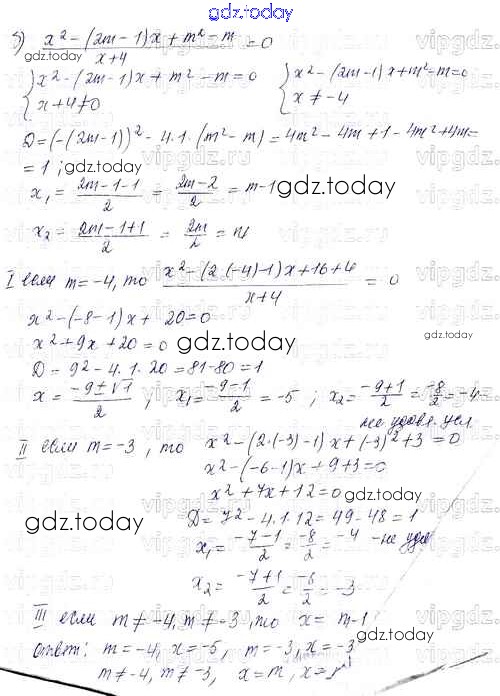 gdz.today
5) x² - (2m - 1)x + m² - m / x + 4 = 0
{ x² - (2m - 1)x + m² - m = 0 { x² - (2m - 1)x + m² - m = 0
x + 4 ≠ 0 x ≠ -4
D = (-(2m - 1))² - 4·1·(m² - m) = 4m² - 4m + 1 - 4m² + 4m =
= 1; gdz.today
x₁ = 2m - 1 - 1 / 2 = 2m - 2 / 2 = m - 1 gdz.today
x₂ = 2m - 1 + 1 / 2 = 2m / 2 = m
I если m = -4, то x² - (2·(-4) - 1)x + 16 + 4 / x + 4 = 0
x² - (-8 - 1)x + 20 = 0
gdz.today gdz.today
x² + 9x + 20 = 0
D = 9² - 4·1·20 = 81 - 80 = 1
x = -9 ± √1 / 2; x₁ = -9 - 1 / 2 = -5; x₂ = -9 + 1 / 2 = -8 / 2 = -4
не удовл. усл
II если m = -3, то x² - (2·(-3) - 1)x + (-3)² + 3 = 0
x² - (-6 - 1)x + 9 + 3 = 0
x² + 7x + 12 = 0 gdz.today
gdz.today D = 7² - 4·1·12 = 49 - 48 = 1
x₁ = -7 - 1 / 2 = -8 / 2 = -4 - не удов
x₂ = -7 + 1 / 2 = -8 / 2 = -3
III если m ≠ -4, m ≠ -3, то x = m - 1
gdz.today
Ответ: m = -4, x = -5, m = -3, x = -3
m ≠ -4, m ≠ -3, x = m, x =
vipgdz.ru